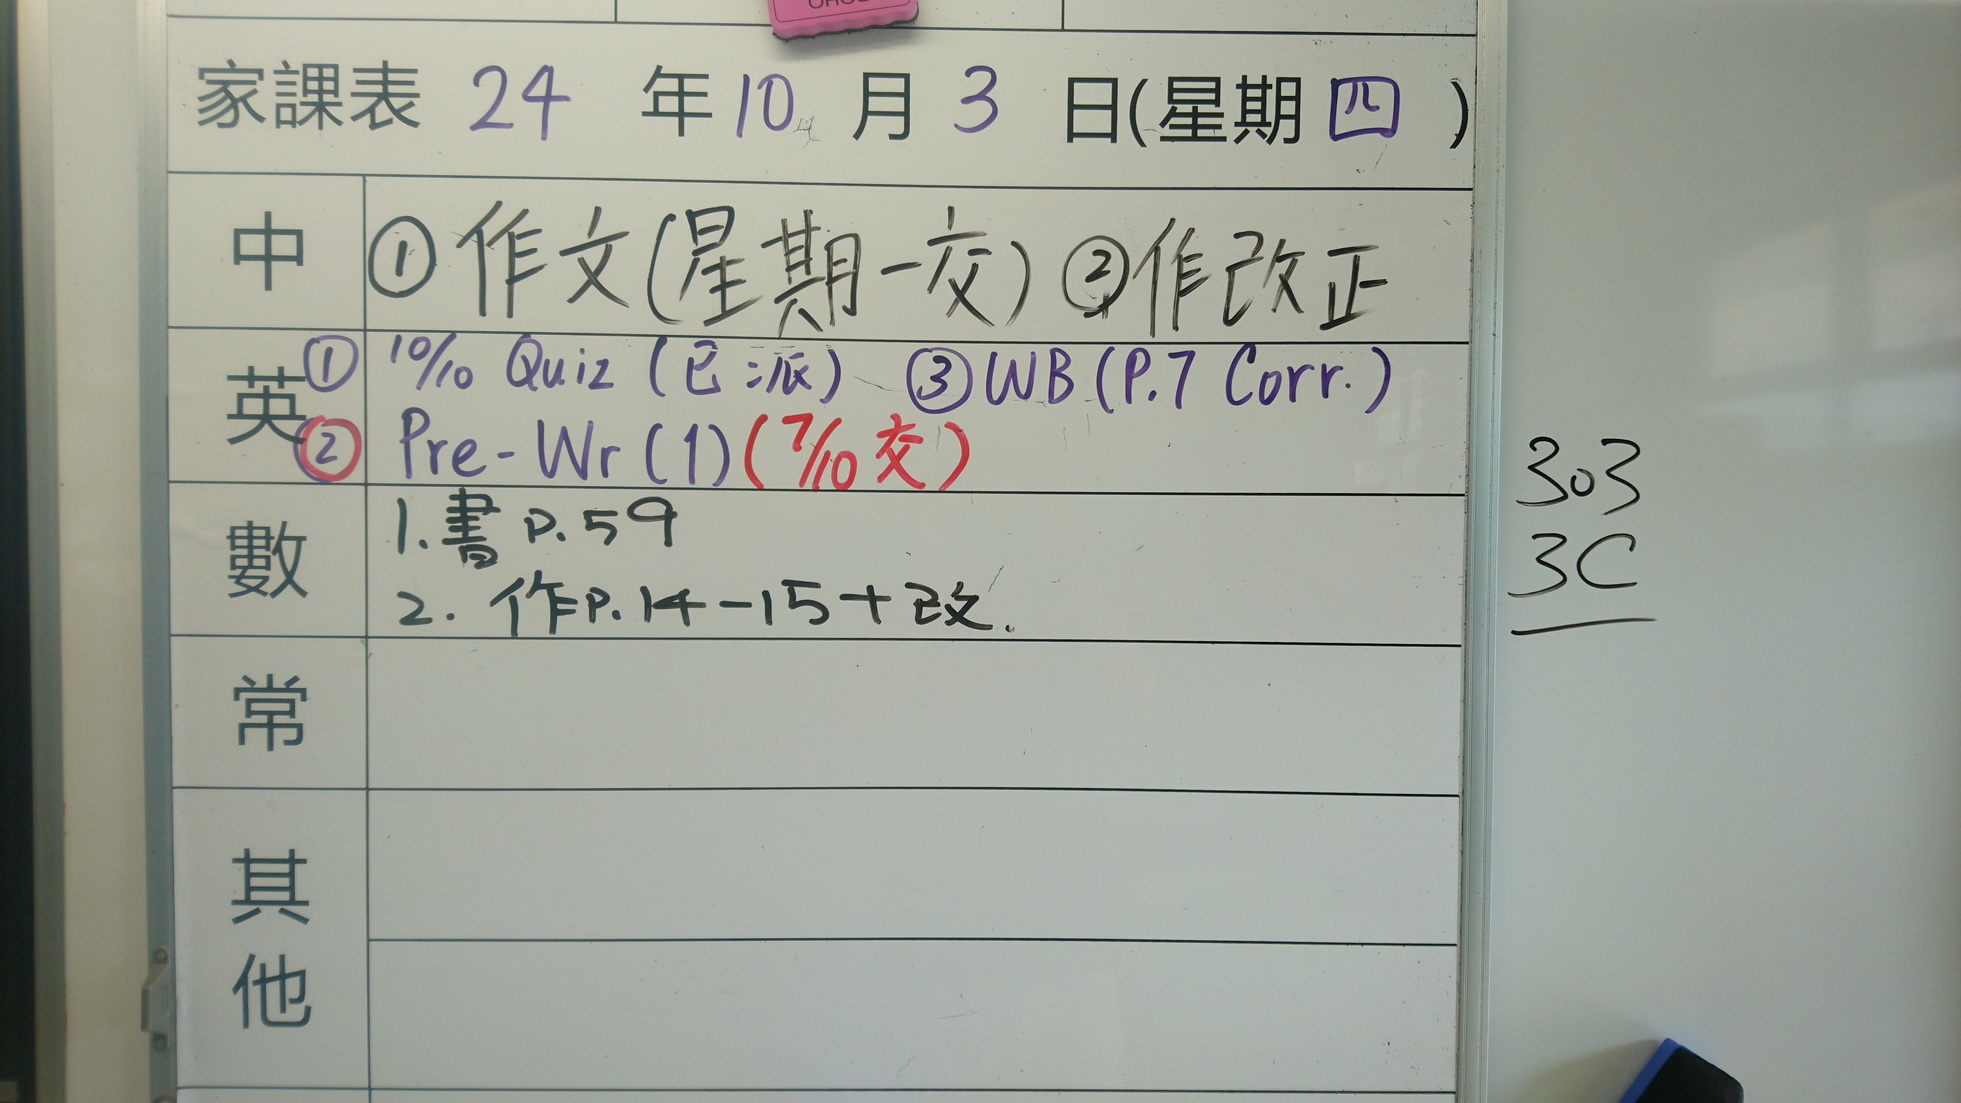 家課表 24 年 10 月 3 日(星期 四 )
中 ① 作文(星期一交) ② 作改正
英 ① 10/10 Quiz (已派) ③ WB (P.7 Corr.)
② Pre-Wr (1) (7/10 交)
數 1. 書 P.59
2. 作P.14-15+改.
常
其他
303
3C